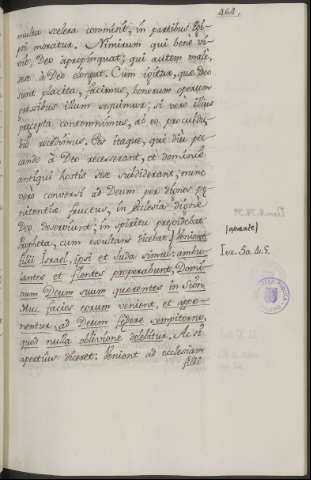 464.
multa scelera commint, in partibus Egi-
pti moratur. Nimirum qui bene vi-
vit, Deo apropinquat; qui autem male,
se à Deo elongat. Cum igitur, quæ Deo
sunt placita, facimus, bonorum operum
passibus illum sequimur; si vero illius
precepta contemnimus, ab eo procul du-
bio recedimus. Hos itaque, qui diu pec-
cando à Deo recesserant, et dominio
antiqui hostis sese subdiderant, nunc
vero conversi ad Deum per dignos pe-
nitentie fructus, in Ecclesia digne
Deo deserviunt; in spiritu previdebat
Propheta, cum exultans dicebat: Venient
filii Israel, ipsi et Juda simul: ambu-
lantes et flentes properabunt, Domi-
num Deum suum querentes in Sion.
Huc facies eorum venient, et appo-
nentur ad Deum federe sempiterno,
quod nulla oblivione delebitur. Ac si
apertius diceret: Venient ad ecclesiam
filii
Ier. 50. 4. 5.